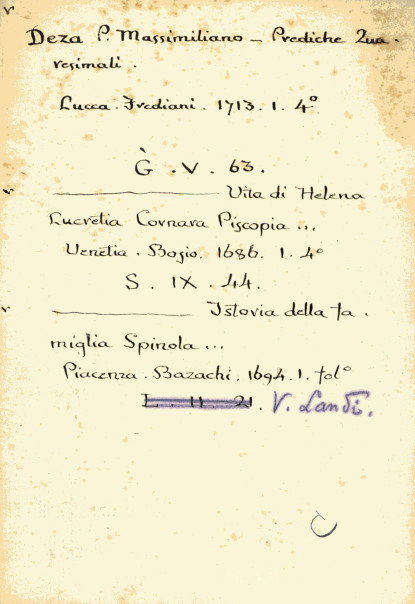 Deza P. Massimiliano - Prediche Qua.
resimali.
Lucca. Frediani. 1713. 1. 4°
G. V. 63.
Vita di Helena
Lucretia Cornara Piscopia ...
Venetia. Bosio. 1686. 1. 4°
S. IX. 44.
Istoria della fa.
miglia Spinola ...
Piacenza. Bazachi. 1694. 1. fol°
L. 11. 21. V. Landi.